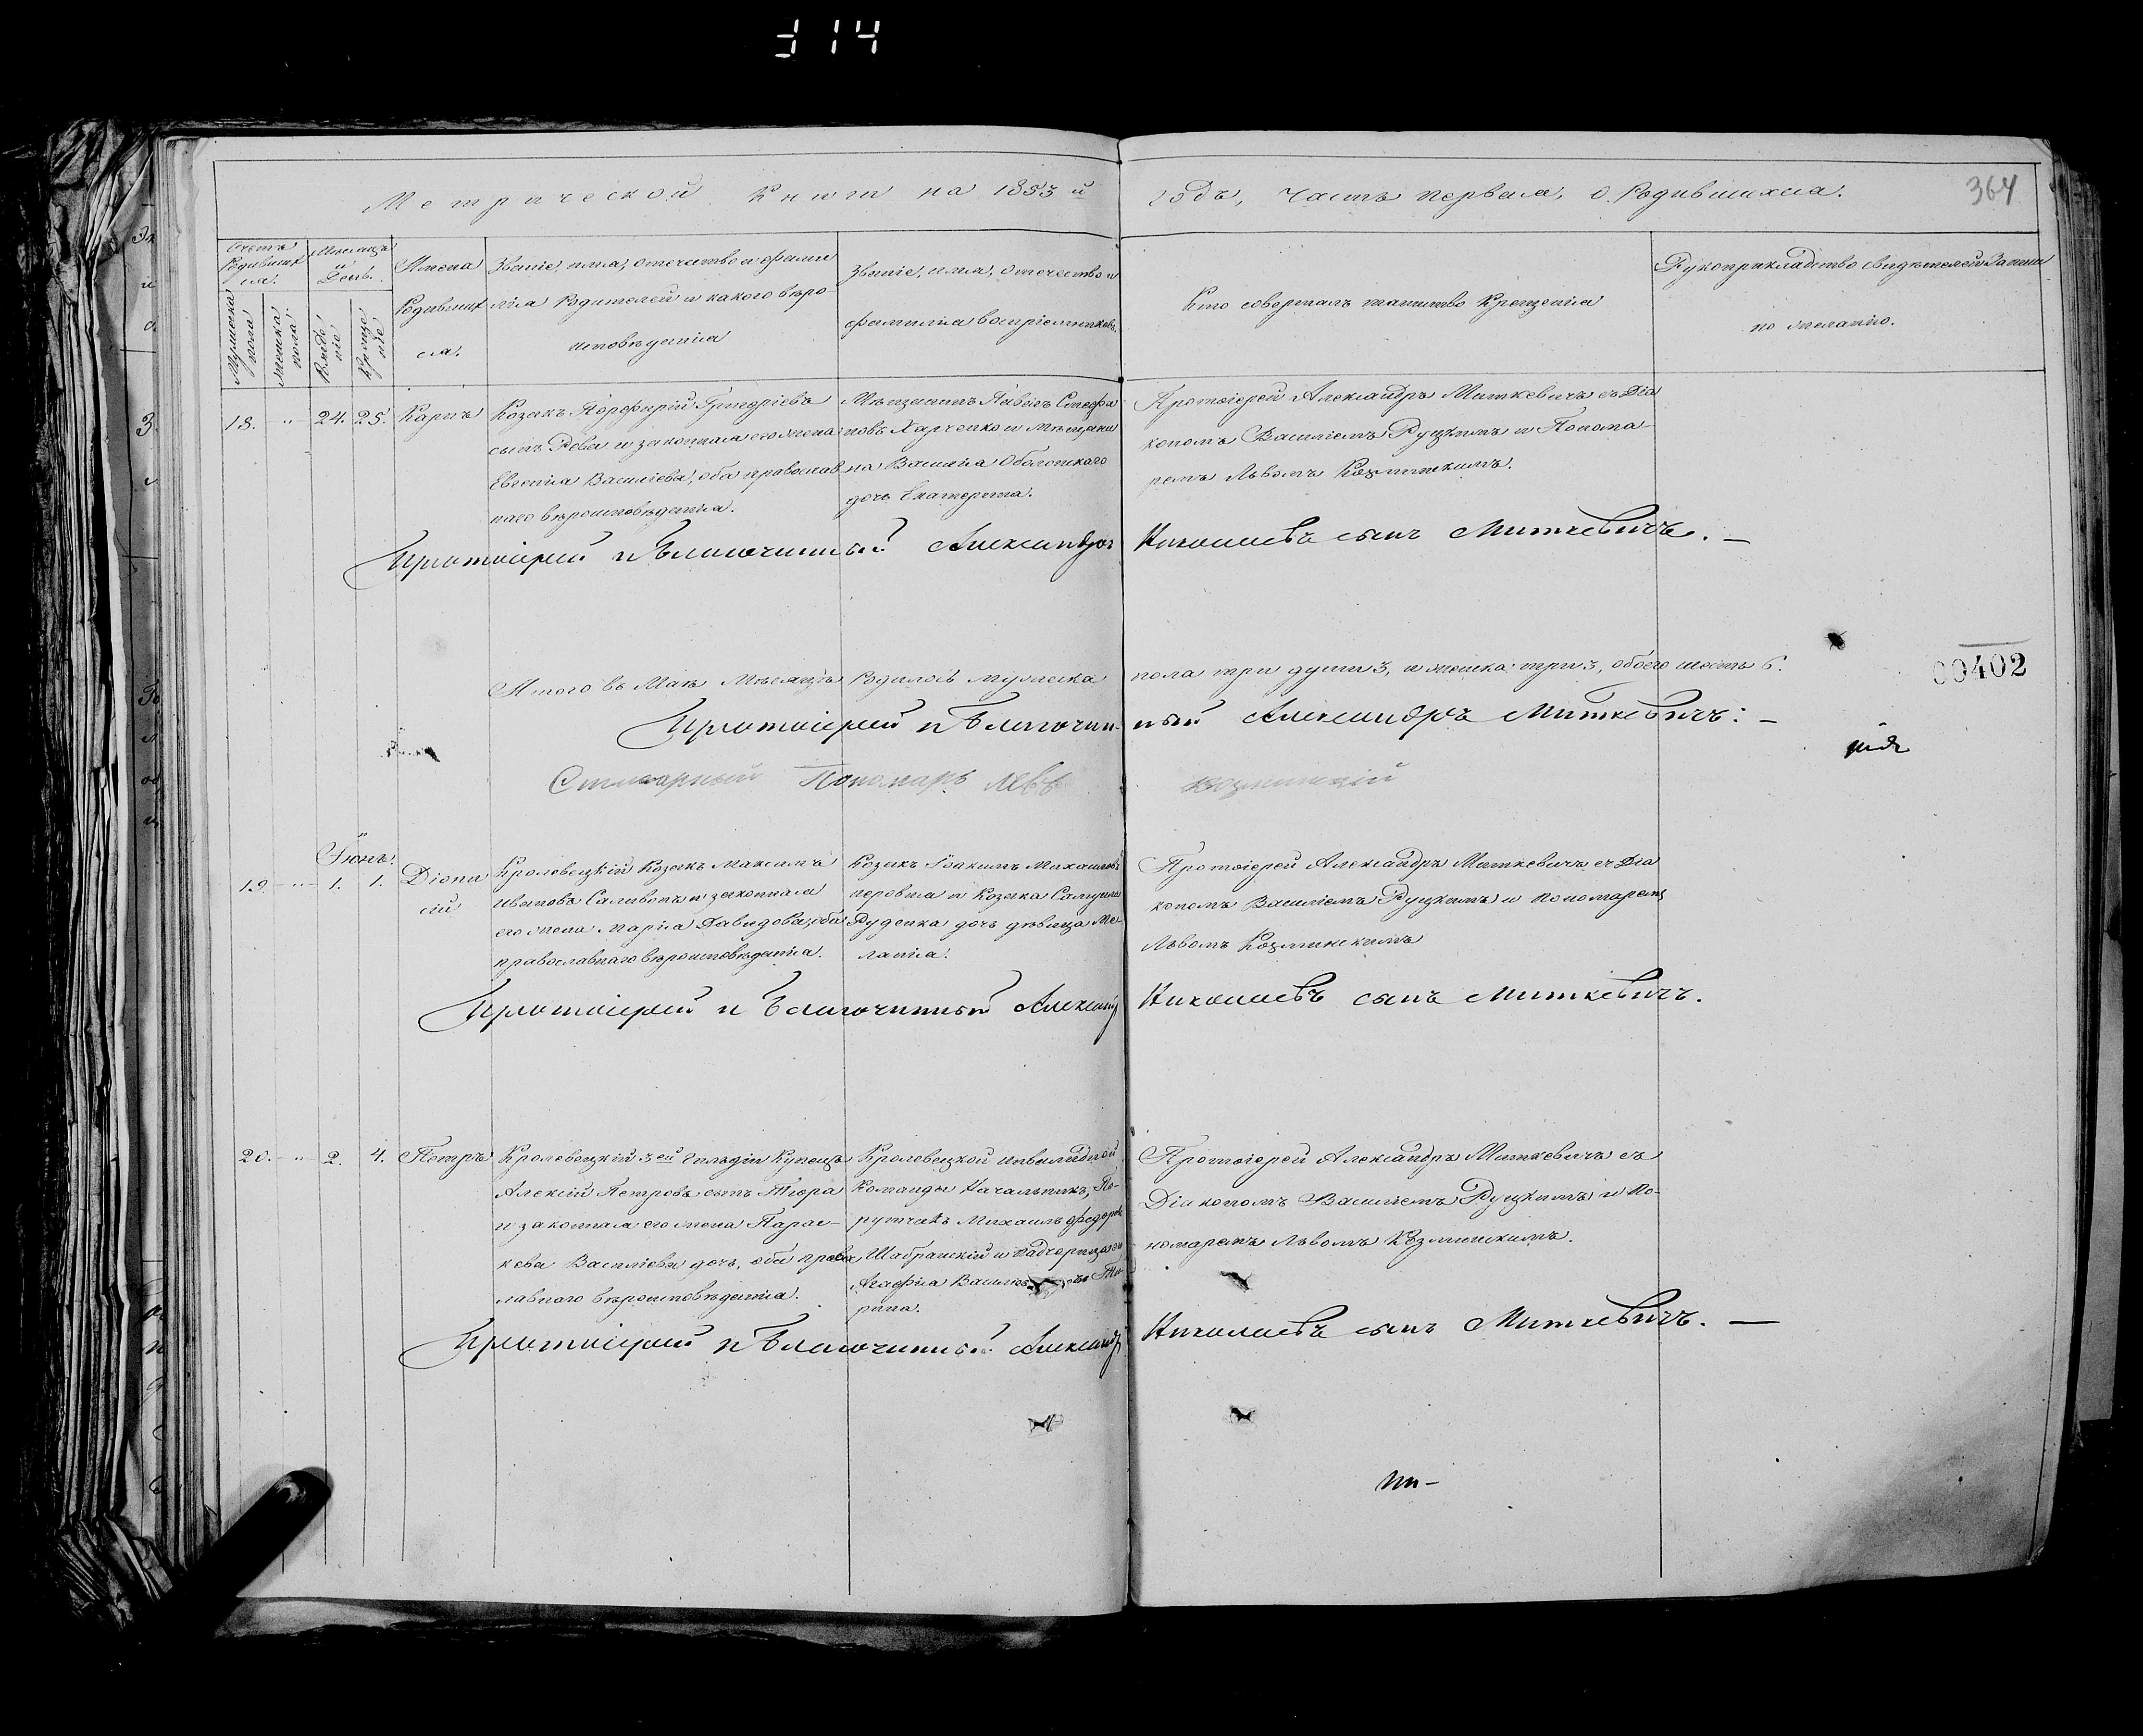 314
Метрической Книги на 1853й годъ, Часть первая, о Родившихся.
364
Счетъ Родившихся.
Мужеска пола
Женска пола.
Мѣсяцъ и День.
Рожденіе
Крещеніе
Имена Родившихся.
Званіе, имя, отечество и фамилія Родителей и какого вѣроисповѣданія
Званіе, имя, отечество и фамилія воспріемниковъ.
Кто совершалъ таинство Крещенія
Рукоприкладство свидѣтелей Записи
по желанію.
18. " 24. 25. Карпъ
Козакъ Порфирій Григоріевъ
сынъ Рева и законная его жена
Евгенія Васильева, оба православ
наго вѣроисповѣданія.
Мѣщанинъ Павелъ Стефа
новъ Харченко и мѣщани
на Василія Оболонскаго
дочь Екатерина.
Протоіерей Александръ Миткевичъ съ Діа
кономъ Василіемъ Руцкимъ и Понома-
ремъ Львомъ Козминскимъ.
Протоіерей и Благочинный Александръ Николаевъ сынъ Миткевичъ. —
Итого въ Маѣ Мѣсяцѣ Родилось мужеска пола три души 3, и женска три 3, обоего шесть 6.
00402
Протоіерей и Благочинный Александръ Миткевичъ: —
Пономарь Левъ Козминскій
Іюнь.
19. " 1. 1. Діони
сій
Кролевецкій Козакъ Максимъ
Ивановъ и законная
его жена Марія Давидова, оба
православнаго вѣроисповѣданія.
Козакъ Іоакимъ Михайловъ
и Козака Самуила
Руденка дочь дѣвица Ме-
ланія.
Протоіерей Александръ Миткевичъ съ Діа
кономъ Василіемъ Руцкимъ и пономаремъ
Львомъ Козминскимъ
Протоіерей и Благочинный Александр Николаевъ сынъ Миткевичъ.
20. " 2. 4. Петръ
Кролевецкій 3ей Гильдіи Купецъ
Алексій Петровъ сынъ Тюра
и законная его жена Парас-
кева Васильева дочь, оба правос
лавнаго вѣроисповѣданія.
Кролевецкой инвалидной
Команды Начальникъ, По-
ручикъ Михаилъ Федоровъ
Шабранскій и падчерица его
Агафія
рина.
Протоіерей Александръ Миткевичъ съ
Діакономъ Василіемъ Руцкимъ и По-
номаремъ Львомъ Козминскимъ.
Протоіерей и Благочинный Александр Николаевъ сынъ Миткевичъ. —